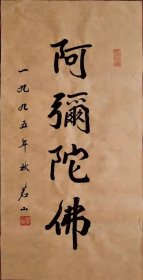 阿彌陀佛
一九九五年秋 茗山